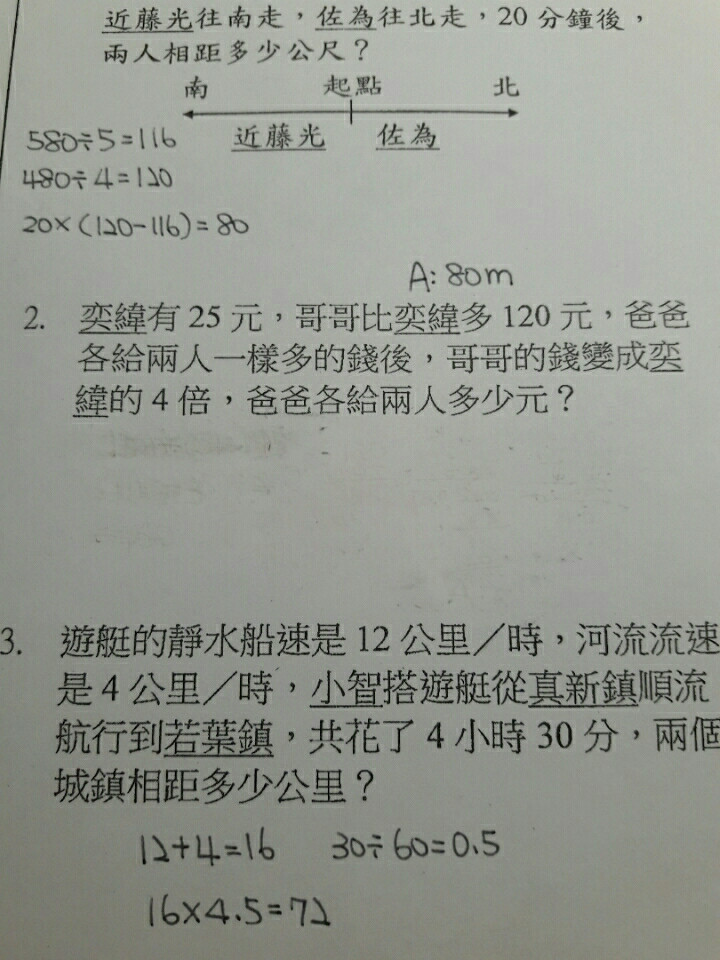 近藤光往南走，佐為往北走，20 分鐘後，
兩人相距多少公尺？
南 起點 北
近藤光 佐為
580÷5=116
480÷4=120
20×(120-116)=80
A:80m
2. 奕緯有 25 元，哥哥比奕緯多 120 元，爸爸
各給兩人一樣多的錢後，哥哥的錢變成奕
緯的 4 倍，爸爸各給兩人多少元？
3. 遊艇的靜水船速是 12 公里／時，河流流速
是 4 公里／時，小智搭遊艇從真新鎮順流
航行到若葉鎮，共花了 4 小時 30 分，兩個
城鎮相距多少公里？
12+4=16 30÷60=0.5
16×4.5=72